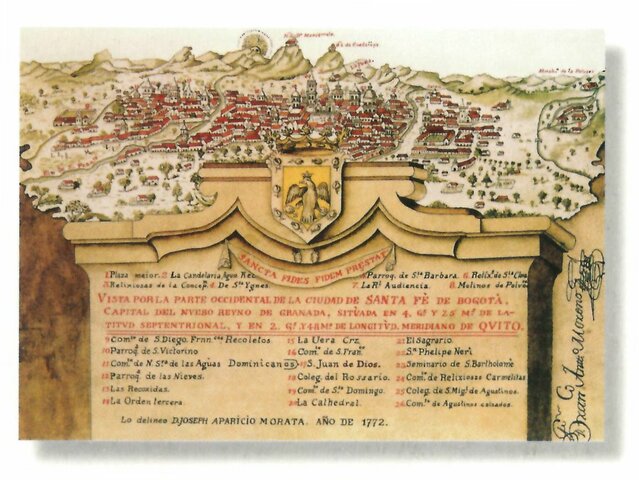 N. S. de Monserrate
N. S. de Guadalupe
SANCTA FIDES FIDEM PRESTAT
1. Plaza maior. 2 La Candelaria Agus Rec. 5 Parroq. de Sta. Barbara. 6 Relix.s de Sta. Clara
3. Relixiosas de la Concep. 4 De Sta. Ygnes. 7 La Rl. Audiencia. 8 Molinos de Polvora
VISTA POR LA PARTE OCCIDENTAL DE LA CIUDAD DE SANTA FÉ DE BOGOTÁ,
CAPITAL DEL NUEBO REYNO DE GRANADA, SITUADA EN 4. Gs. Y 25 Ms. DE LA-
TITUD SEPTENTRIONAL, Y EN 2. Gs. Y 48 Ms. DE LONGITUD, MERIDIANO DE QVITO.
9 Comto. de S. Diego. Frnn.cos Recoletos 15 La Uera Crz 21 El Sagrario
10 Parroq. de S. Victorino 16 Comto. de S. Fran.co 22 Sn. Phelipe Neri
11 Comto. de N. Sra. de las Aguas Dominicanos 17 S. Juan de Dios. 23 Seminario de S. Bartholome
12 Parroq. de las Nieves. 18 Coleg. del Rossario. 24 Comto. de Relixiosas Carmelitas
13 Las Recoxidas. 19 Comto. de Sto. Domingo. 25 Coleg. de S. Migl. de Agustinos.
14 La Orden tercera. 20 La Cathedral. 26 Comto. de Agustinos calzados.
Lo delineo D. JOSEPH APARICIO MORATA. AÑO DE 1772.
Moreno